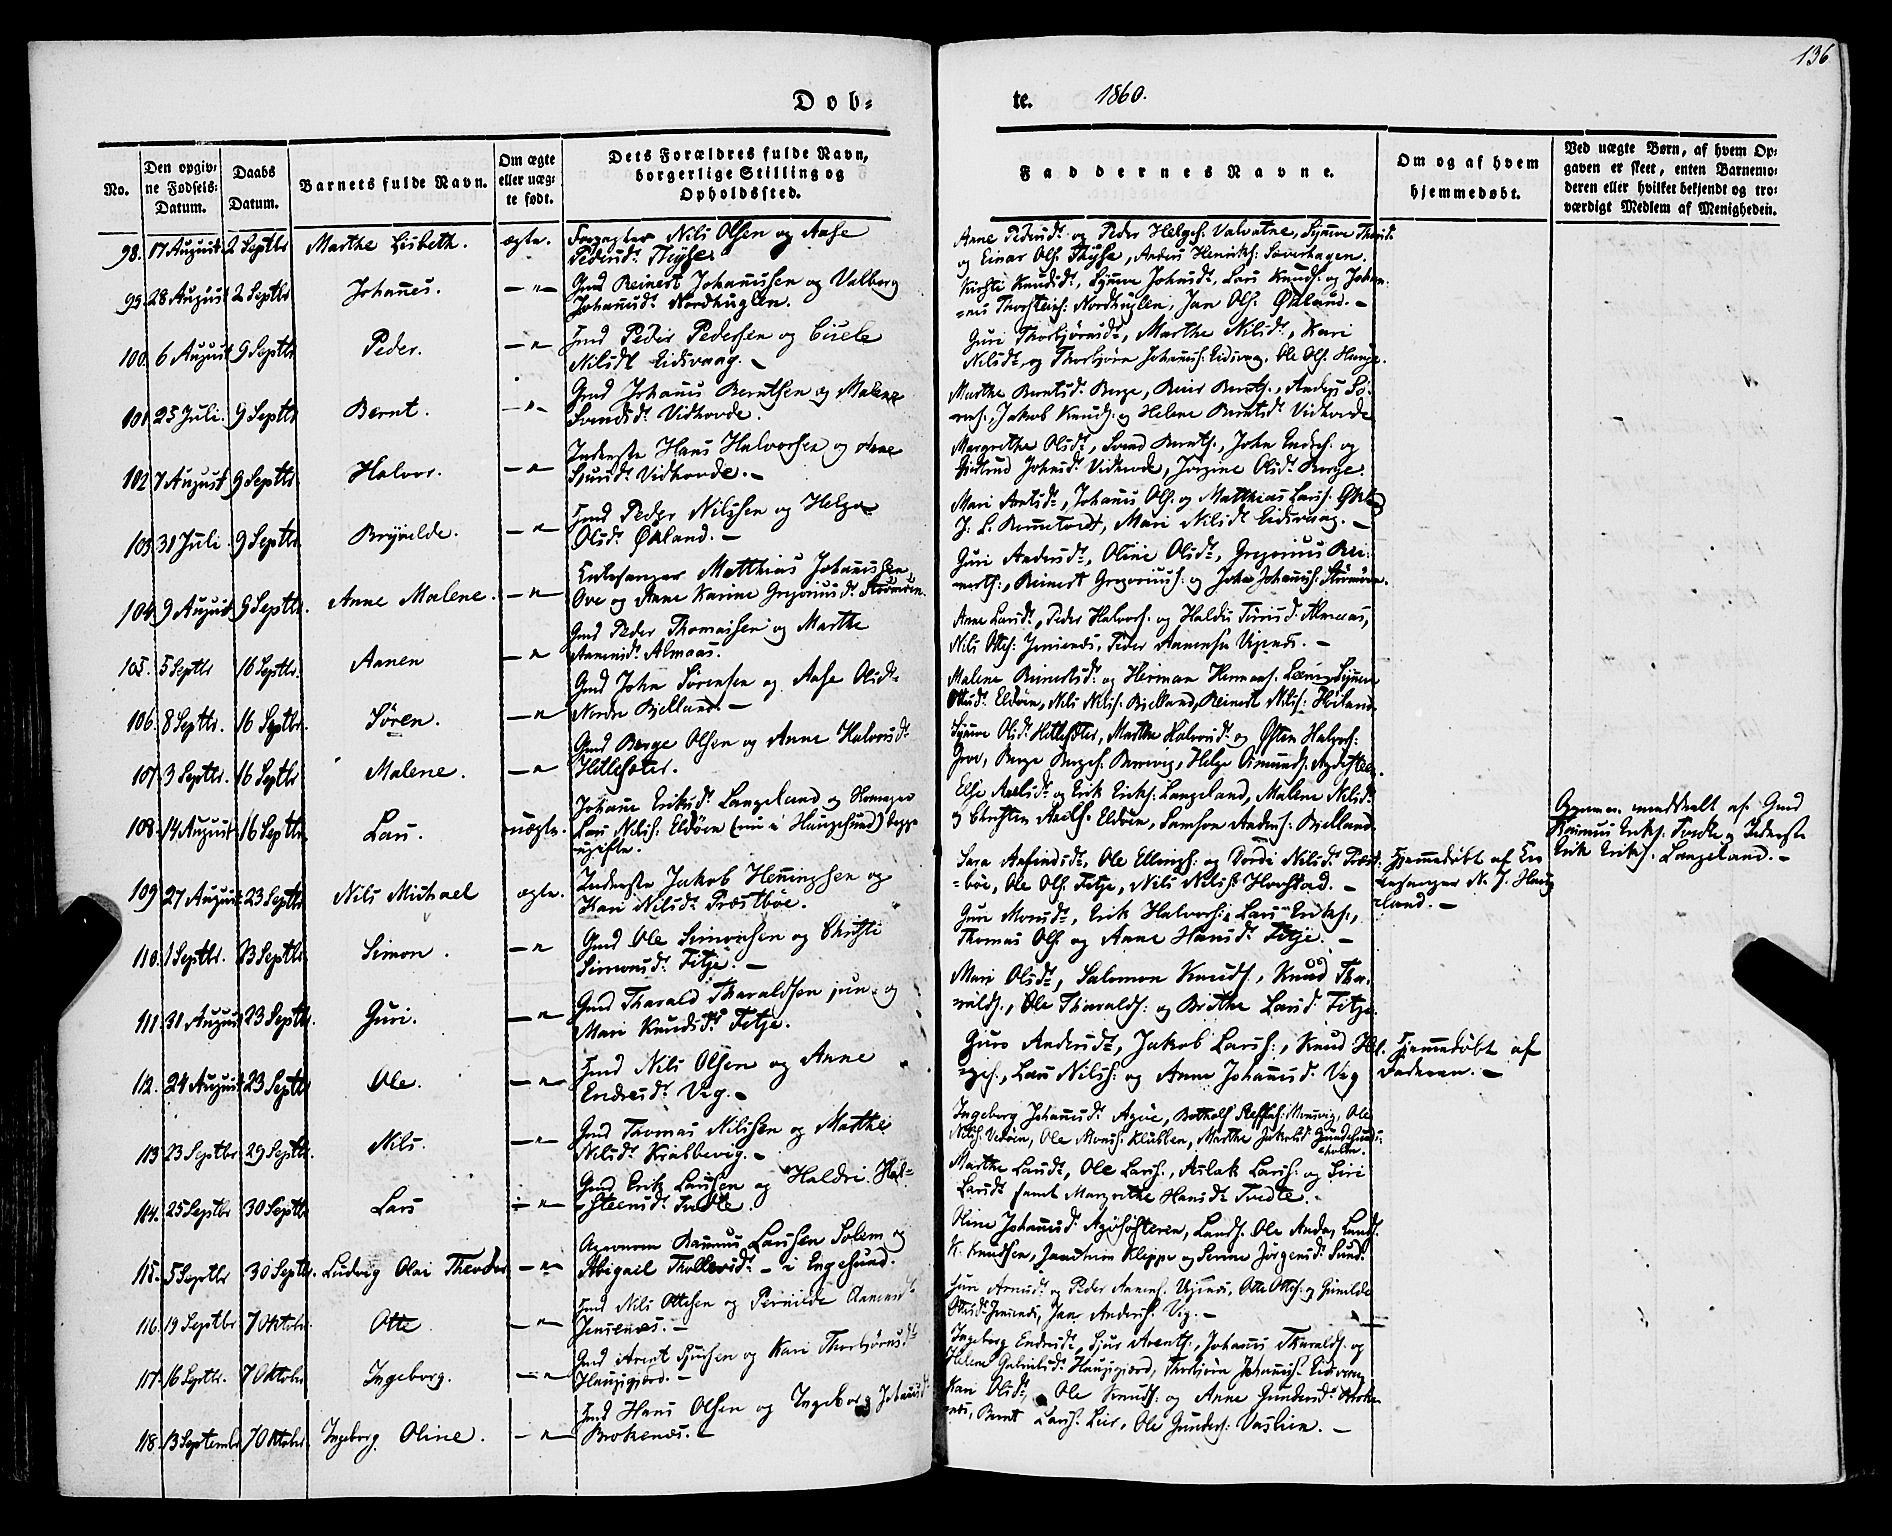 136
Dob-
te. 1860.
No.
Den opgiv-
ne Fødsels-
Datum.
Daabs
Datum.
Barnets fulde Navn.
Om ægte
eller uæg-
te født.
Dets Forældres fulde Navn,
borgerlige Stilling og
Opholdssted.
Faddernes Navne.
Om og af hvem
hjemmedøbt.
Ved uægte Børn, af hvem Op-
gaven er skeet, enten Barnemo-
deren eller hvilket bekjendt og tro-
værdigt Medlem af Menigheden.
98. 17 August 2 Septbr Marthe Lisbeth. ægte. Nils Olsen og Aase
Pedersdt.
Anne Pedersdt. og Peder Helges. Valvatne, Synneve
og Einar Ols. Anders Henriks.
99. 28 August 2 Septbr Johannes. — " — Gmd Reinert Johannesen og Valborg
Johannesdt. Nordhuglen.
Kirsti Knudsdt., Synneve Johnsdt., Lars Knuds. og Johan-
=nes Thorsteins. Nordhuglen, Jan Ols. Økland. —
100. 6 August 9 Septbr Peder. — " Gmd Peder Pedersen og Cisele
Nilsdt Eidsvaag. —
Guri Thorbjørnsdt., Marthe Nilsdt., Kari
Nilsdt. og Thorbjørn Johannes. Eidsvaag, Ole Ols. Hauge.
101. 25 Juli. 9 Septbr Bernt. — " — Gmd Johannes Berntsen og Malene
Svendsdt. Vidhovde.
Marthe Berntsdt. Berge, Beier Bernts., Anders Sø-
rens., Jakob Knuds. og Helene Berntsdt. Vidhovde
102 7 August 9 Septbr Halvor. — " — Inderste Hans Halvorsen og Anne
Sjursdt. Vidhovde. —
Margrethe Olsdt., Svend Bernts., John Endres. og
Gjertrud Johnsdt. Vidhovde, Jørgine Olsdt. Berge.
103 31 Juli. 9 Septbr. Brynilde. — " Gmd Peder Nilssen og Helga
Olsdt. Økland. —
Mari Arntsdt., Johannes Ols. og Matthias Lars. Økland
J. L. Mari Nilsdt Eidsvaag. —
104 9 August 9 Septbr. Anne Malene. — " — Matthias Johannessen
Ove og Anne Karine Gregoriusdt.
Guri Andersdt., Oline Olsdt., Gregorius Rei-
nerts., Reinert Gregorius. og John Johannes.
105. 5 Septbr 16 Septbr. Aanen — " Gmd Peder Thomassen og Marthe
Aanensdt. Almaas.
Anne Larsdt., Peder Halvors. og Almaas,
Nils Ottes. Jensenes, Peder Aanensen
106. 8 Septbr. 16 Septbr. Søren. — " Gmd John Sørensen og Aase Olsdt.
Nordre Bjelland. —
Malene Reinertsdt. og Herman Hermans. Synneve
Ottesdt. Eldøen, Nils Nils. Bjelland, Reinert Nils.
107. 3 Septbr. 16 Septbr Malene. — " Gmd Berge Olsen og Anne Halvorsdt.
Hetlesæter.
Synneve Olsdt. Hetlesæter, Marthe Halvorsdt. og Østen Halvors.
Berge Berges. Helge
108. 14 August 16 Septbr Lars. uægte. Johanne Eriksdt. Langeland og
Lars Nils. Eldøen (nu i Haugesund) begge
ugifte.
Else og Erik Eriks. Langeland, Malene Nilsdt.
og Christen Eldøen, Samson Anders. Bjelland.
meddeelt af Gmd
Rasmus Eriks. Tvedte og Inderste
Erik Eriks. Langeland. —
109 27 August 23 Septbr Nils Michael ægte. Inderste Jakob Henningsen og
Kari Nilsdt. Præstbøe.
Sara Ole Ellings. og Dordi Nilsdt. Præst-
=bøe, Ole Ols. Fitje, Nils Nils. Hovstad. —
Hjemmedøbt af Kir-
kesanger N. J. Haug-
land. —
110. 1 Septbr. 23 Septbr. Simon. — " Gmd Ole Simonsen og Christi
Simonsdt. Fitje. —
Guri Monsdt., Erik Halvors., Lars Eriks.,
Thomas Ols. og Anne Hansdt. Fitje. —
111. 31 August 23 Septbr. Guri. — " Gmd Tharald Tharaldsen jun. og
Mari Knudsdt. Fitje.
Mari Olsdt., Salomon Knuds., Knud Tha-
ralds., Ole Tharalds. og Brithe Larsd Fitje.
112. 24 August 23 Septbr Ole. — " — Gmd Nils Olsen og Anne
Endresdt. Vig. —
Guro Andersdt., Jakob Lars., Knud Hel-
ges., Lars Nils. og Anne Johannesd. Vig
Hjemmedøbt af
Faderen. —
113 23 Septbr 29 Septbr. Nils. — " — Gmd Thomas Nilssen og Marthe
Nilsdt. Krabbevig. —
Ingeborg Johannesdt. Botholf Ole
Nils. Vedøen, Ole Mons. Klubben, Marthe Jakobsd.
114. 25 Septbr 30 Septbr Lars — " — Gmd Erik Larssen og
Tvedte.
Marthe Larsdt., Ole Lars., Aslak Lars. og Siri
Larsdt. samt Margrethe Hansdt. Tvedte. —
115. 5 Septbr 30 Septbr. Ludvig Olai Theodor — " — Agronom Rasmus Larssen Solem og
Abigael Thollevsdt. — i Engesund.
Oline Johannesd. Lands. Ole
K. Knudsen, Kleppe og Serine Jørgensdt. Sund.
116. 19 Septbr 7 Oktobr. Otte — " — Gmd Nils Ottesen og Pernilde Aanensdt.
Jensenes. —
og Peder Aanens. Otte Ottes. og Gunilde
Ottesdt. Jensenes, Anders. Vig. —
117. 16 Septbr. 7 Oktobr Ingeborg. — " Gmd Arent Sjursen og Kari Thorbjørnsdt.
—
Ingeborg Endresdt., Sjur Arents., Johannes Tharalds. og
Helene Gabrielsdt. Thorbjørn Johannes. Eidsvaag
118. 13 Septembr 7 Oktobr. Ingeborg Oline. — " — Gmd Hans Olsen og Ingeborg Johannesdt
Brokenes. —
Kari Olsdt., Ole Knuds. og Anne Gundersdt. Broke-
nes, Bernt Lars. Lier, Ole Gunders. Vaslien. —